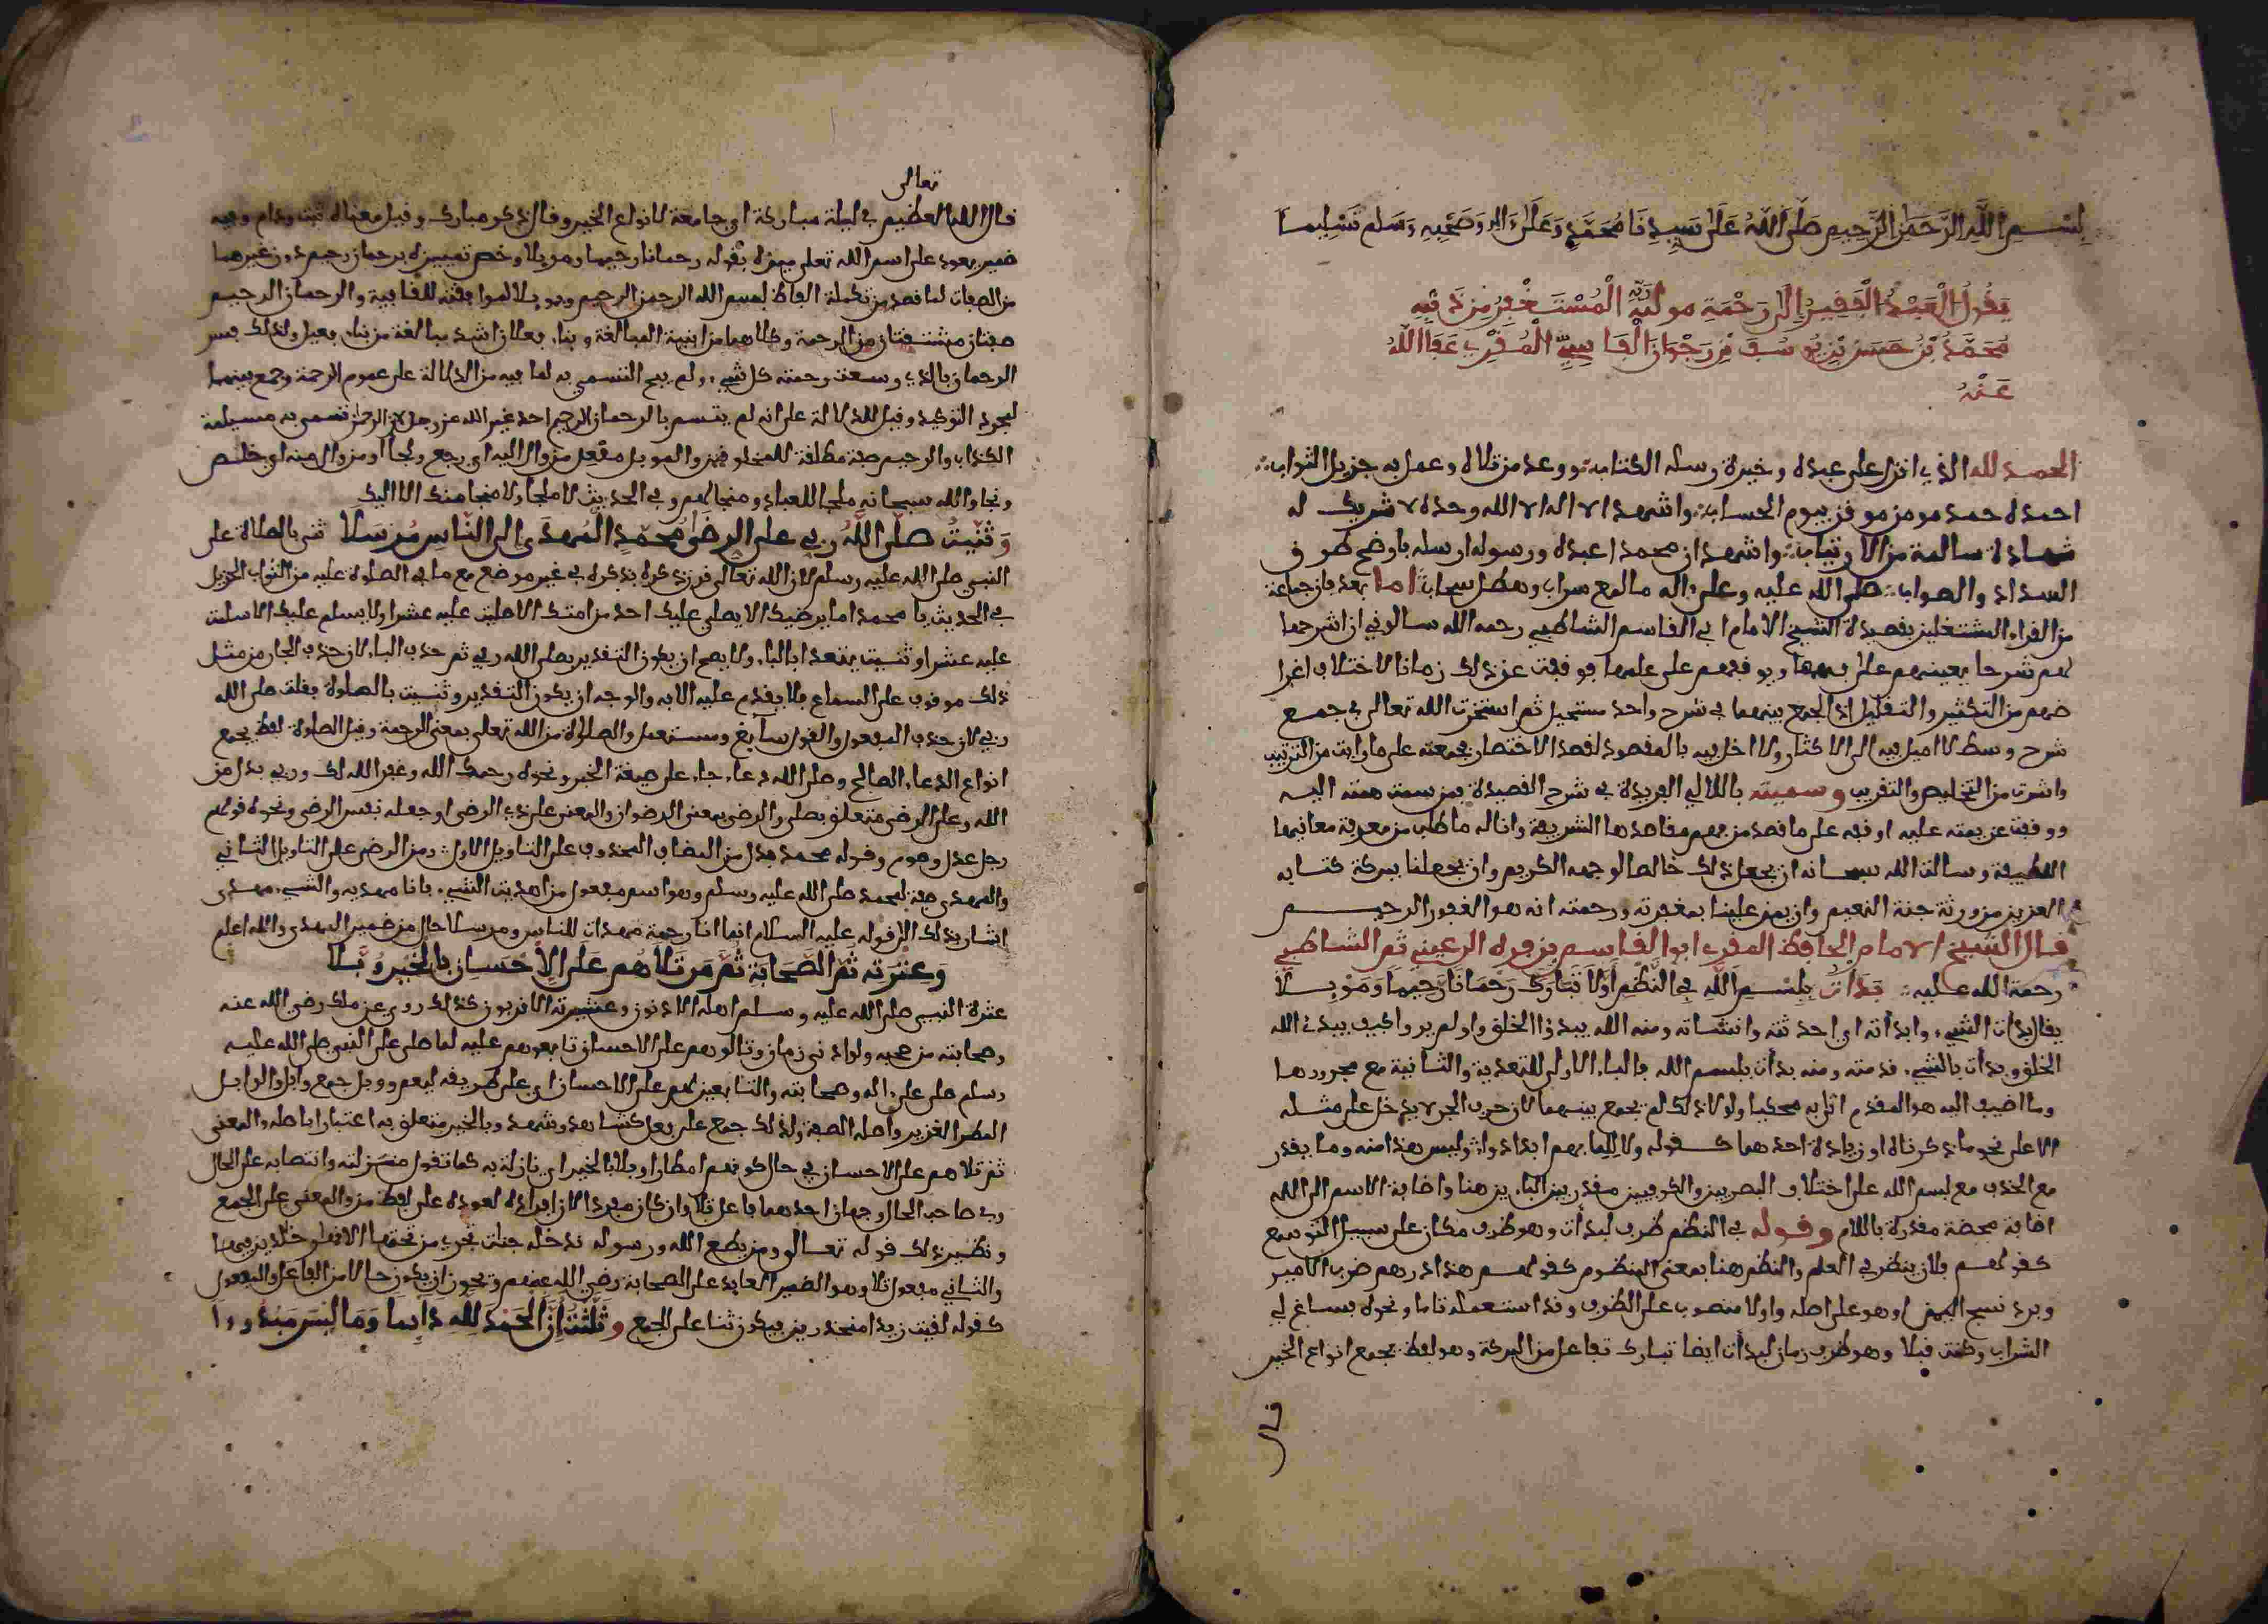 بسم الله الرحمن الرحيم صلى الله على سيدنا محمد وعلى ءاله وصحبه وسلم تسليما
يقول العبد الفقير إلى رحمة مولىه ربه المستغفر من ذنبه
محمد بن حسن بن يوسف بن رجوان الفاسي المقرئ عفا الله
عنه
الحمد لله الذي انزل على عبده وخيرة رسله الكتاب ووعد من تلاه وعمل به جزيل الثواب
احمده حمد مومن موفن بيوم الحساب واشهد الا اله الا الله وحده لا شريك له
شهادة سالمة من الارتياب واشهد ان محمدا عبده ورسوله ارسله باوضح طرق
السداد والصواب صلى الله عليه وعلى ءاله ما لمع سراب وهطل سحاب اما بعد فان جماعة
من القراء المشتغلين بقصيدة الشيخ الامام ابي القاسم الشاطبي رحمه الله سالوني ان اشرحها
لهم شرحا يعينهم على فهمها ويوقفهم على علمها فوقفت عن ذلك زمانا لاختلاف اغرا
ضهم من التكثير والتقليل اذ الجمع بينهما في شرح واحد مستحيل ثم استخرت الله تعالى في جمع
شرح وسط لا اميل فيه الى الاكثار ولا اخل فيه بالمقصود لقصد الاختصار فجمعته على ما رايت من الترتيب
واشرت من التخليص والتقريب وسميته باللالي الفريدة في شرح القصيدة فمن سمت همته اليه
ووقفت عزيمته عليه اوقفه على ما قصد من فهم مقاصدها الشريفة وانا له ما طلب من معرفة معانيها
اللطيفة وسالت الله سبحانه ان يجعل ذلك خالصا لوجهه الكريم وان يجعلنا ببركة كتابه
العزيز من ورثة جنة النعيم وان يمن علينا بمغفرته ورحمته انه هو الغفور الرحيم
قال الشيخ الامام الحافظ المقرئ ابو القاسم بن فيره الرعيني ثم الشاطبي
رحمة الله عليه بدأت ببسم الله في النظم أولا تبارك رحمانا رحيما وموئلا
يقال بدات الشيء وابداته اي احدثته وانشاته ومنه الله يبدؤا الخلق واولم يروا كيف يبدئ الله
الخلق وبدات بالشيء قدمته ومنه بدأت ببسم الله فالباء الاولى للتعدية والثانية مع مجرورها
وما اضيف اليه هو المقدم اتى به محكيا ولولا ذلك لم يجمع بينهما لان حرف الجر لا يدخل على مثله
الا على نحو ما ذكرناه او زيادة احدهما كقوله ولا للما بهم ابدا دواء وليس هذا منه وما يقدر
مع الحذف مع بسم الله على اختلاف البصريين والكوفيين مقدر بين الباءين هنا واضافة الاسم الى الله
اضافة محضة مقدرة باللام وقوله في النظم ظرف لبدأت وهو ظرف مكان على سبيل التوسع
كقولهم فلان ينظر في العلم والنظم هنا بمعنى المنظوم كقولهم هذا درهم ضرب الامير
وبرد نسج اليمن او هو على اصله واولا منصوب على الظرف وقد استعمله تاما ونحوه فساغ لي
الشراب وكنت قبلا وهو ظرف زمان لبدأت ايضا تبارك تفاعل من البركة وهو لفظ يجمع انواع الخير
قال
تعالى
قال الله العظيم في ليلة مباركة اي جامعة لانواع الخير وقال ذكر مبارك وقيل معناه ثبت ودام وفيه
ضمير يعود على اسم الله تعلى ميزه بقوله رحمانا رحيما وموىلا وخص تمييزه برحمان رحيم دون غيرهما
من الصفات لما قصد من تكملة الفاظ بسم الله الرحمن الرحيم وموىلا لموافقته للقافية والرحمان الرحيم
صفتان مشتقتان من الرحمة وكلاهما من ابنية المبالغة وبناء فعلان اشد مبالغة من بناء فعيل ولذلك فسر
الرحمان بالذي وسعت رحمته كل شيء ولم يبح التسمي به لما فيه من الدلالة على عموم الرحمة وجمع بينهما
لمجرد التوكيد وقيل للدلالة على انه لم يتسم بالرحمان الرحيم احد غير الله عز وجل لان الرحمان تسمى به مسيلمة
الكذاب والرحيم صفة مطلقة للمخلوقين والموىل مفعل من وال اليه اي رجع ولجا او من وال منه اي خلص
ونجا والله سبحانه ملجا للعباد ومنجا لهم وفي الحديث لا ملجا ولا منجا منك الا اليك
وثنيت صلى الله ربي على الرضى محمد المهدى إلى الناس مرسلا ثنى بالصلاة على
النبي صلى الله عليه وسلم لان الله تعالى قرن ذكره بذكره في غير موضع مع ما في الصلوة عليه من الثواب الجزيل
في الحديث يا محمد اما يرضيك الا يصلي عليك احد من امتك الا صليت عليه عشرا ولا يسلم عليك الا سلمت
عليه عشرا وثنيت يتعدا بالباء ولا يصح ان يكون التقدير بصلى الله ربي ثم حذف الباء لان حذف الجار من مثل
ذلك موقوف على السماع فلا يقدم عليه الا به والوجه ان يكون التقدير وثنيت بالصلوة فقلت صلى الله
ربي لان حذف المفعول والقول سايغ ومستعمل والصلوة من الله تعلى بمعنى الرحمة وقيل الصلوة لفظ يجمع
انواع الدعاء الصالح وصلى الله دعاء جاء على صيغة الخبر ونحوه رحمك الله وغفر الله لك وربي بدل من
الله وعلى الرضى متعلق بصلى والرضى بمعنى الرضوان والمعنى على ذي الرضى او جعله نفس الرضى ونحوه قولهم
رجل عدل وصوم وقوله محمد بدل من المضاف المحذوف على التاويل الاول ومن الرضى على التاويل الثاني
والمهدى صفة لمحمد صلى الله عليه وسلم وهو اسم مفعول من اهديت الشيء فانا مهديه والشيء مهدى
اشار بذلك الى قوله عليه السلام انما انا رحمة مهداة للناس ومرسلا حال من ضمير المهدى والله اعلم
وعترته ثم الصحابة ثم من تلاهم على الإحسان بالخير وبلا
عترة النبي صلى الله عليه وسلم اهله الادنون وعشيرته الاقربون كذلك روي عن ملك رضي الله عنه
وصحابته من صحبه ولو ادنى زمان وتالوهم على الاحسان تابعوهم عليه لما صلى على النبي صلى الله عليه
وسلم صلى على ءاله وصحابته والتابعين لهم على الاحسان اي على طريقه ليعم ووبل جمع وابل والوابل
المطر الغزير واصله الصفة ولذلك جمع على فعل كشاهد وشهد وبالخير متعلق به اعتبارا باصله والمعنى
ثم تلاهم على الاحسان في حال كونهم امطارا وبلا بالخير اي نازلة به كما تقول منزلته وانتصابه على الحال
وفي صاحب الحال وجهان احدهما فاعل تلا وان كان مفردا لان افراده لعوده على لفظ من والمعنى على الجمع
ونظير ذلك قوله تعالى ومن يطع الله ورسوله ندخله جنات تجري من تحتها الانهار خلدين فيها
والثاني مفعول تلا وهو الضمير العايد على الصحابة رضي الله عنهم ويجوز ان يكون حالا من الفاعل والمفعول
كقوله لقيت زيدا منحدرين فيكون ثنا على الجمع وثلثت أن الحمد لله دايما وما ليس مبدوءا